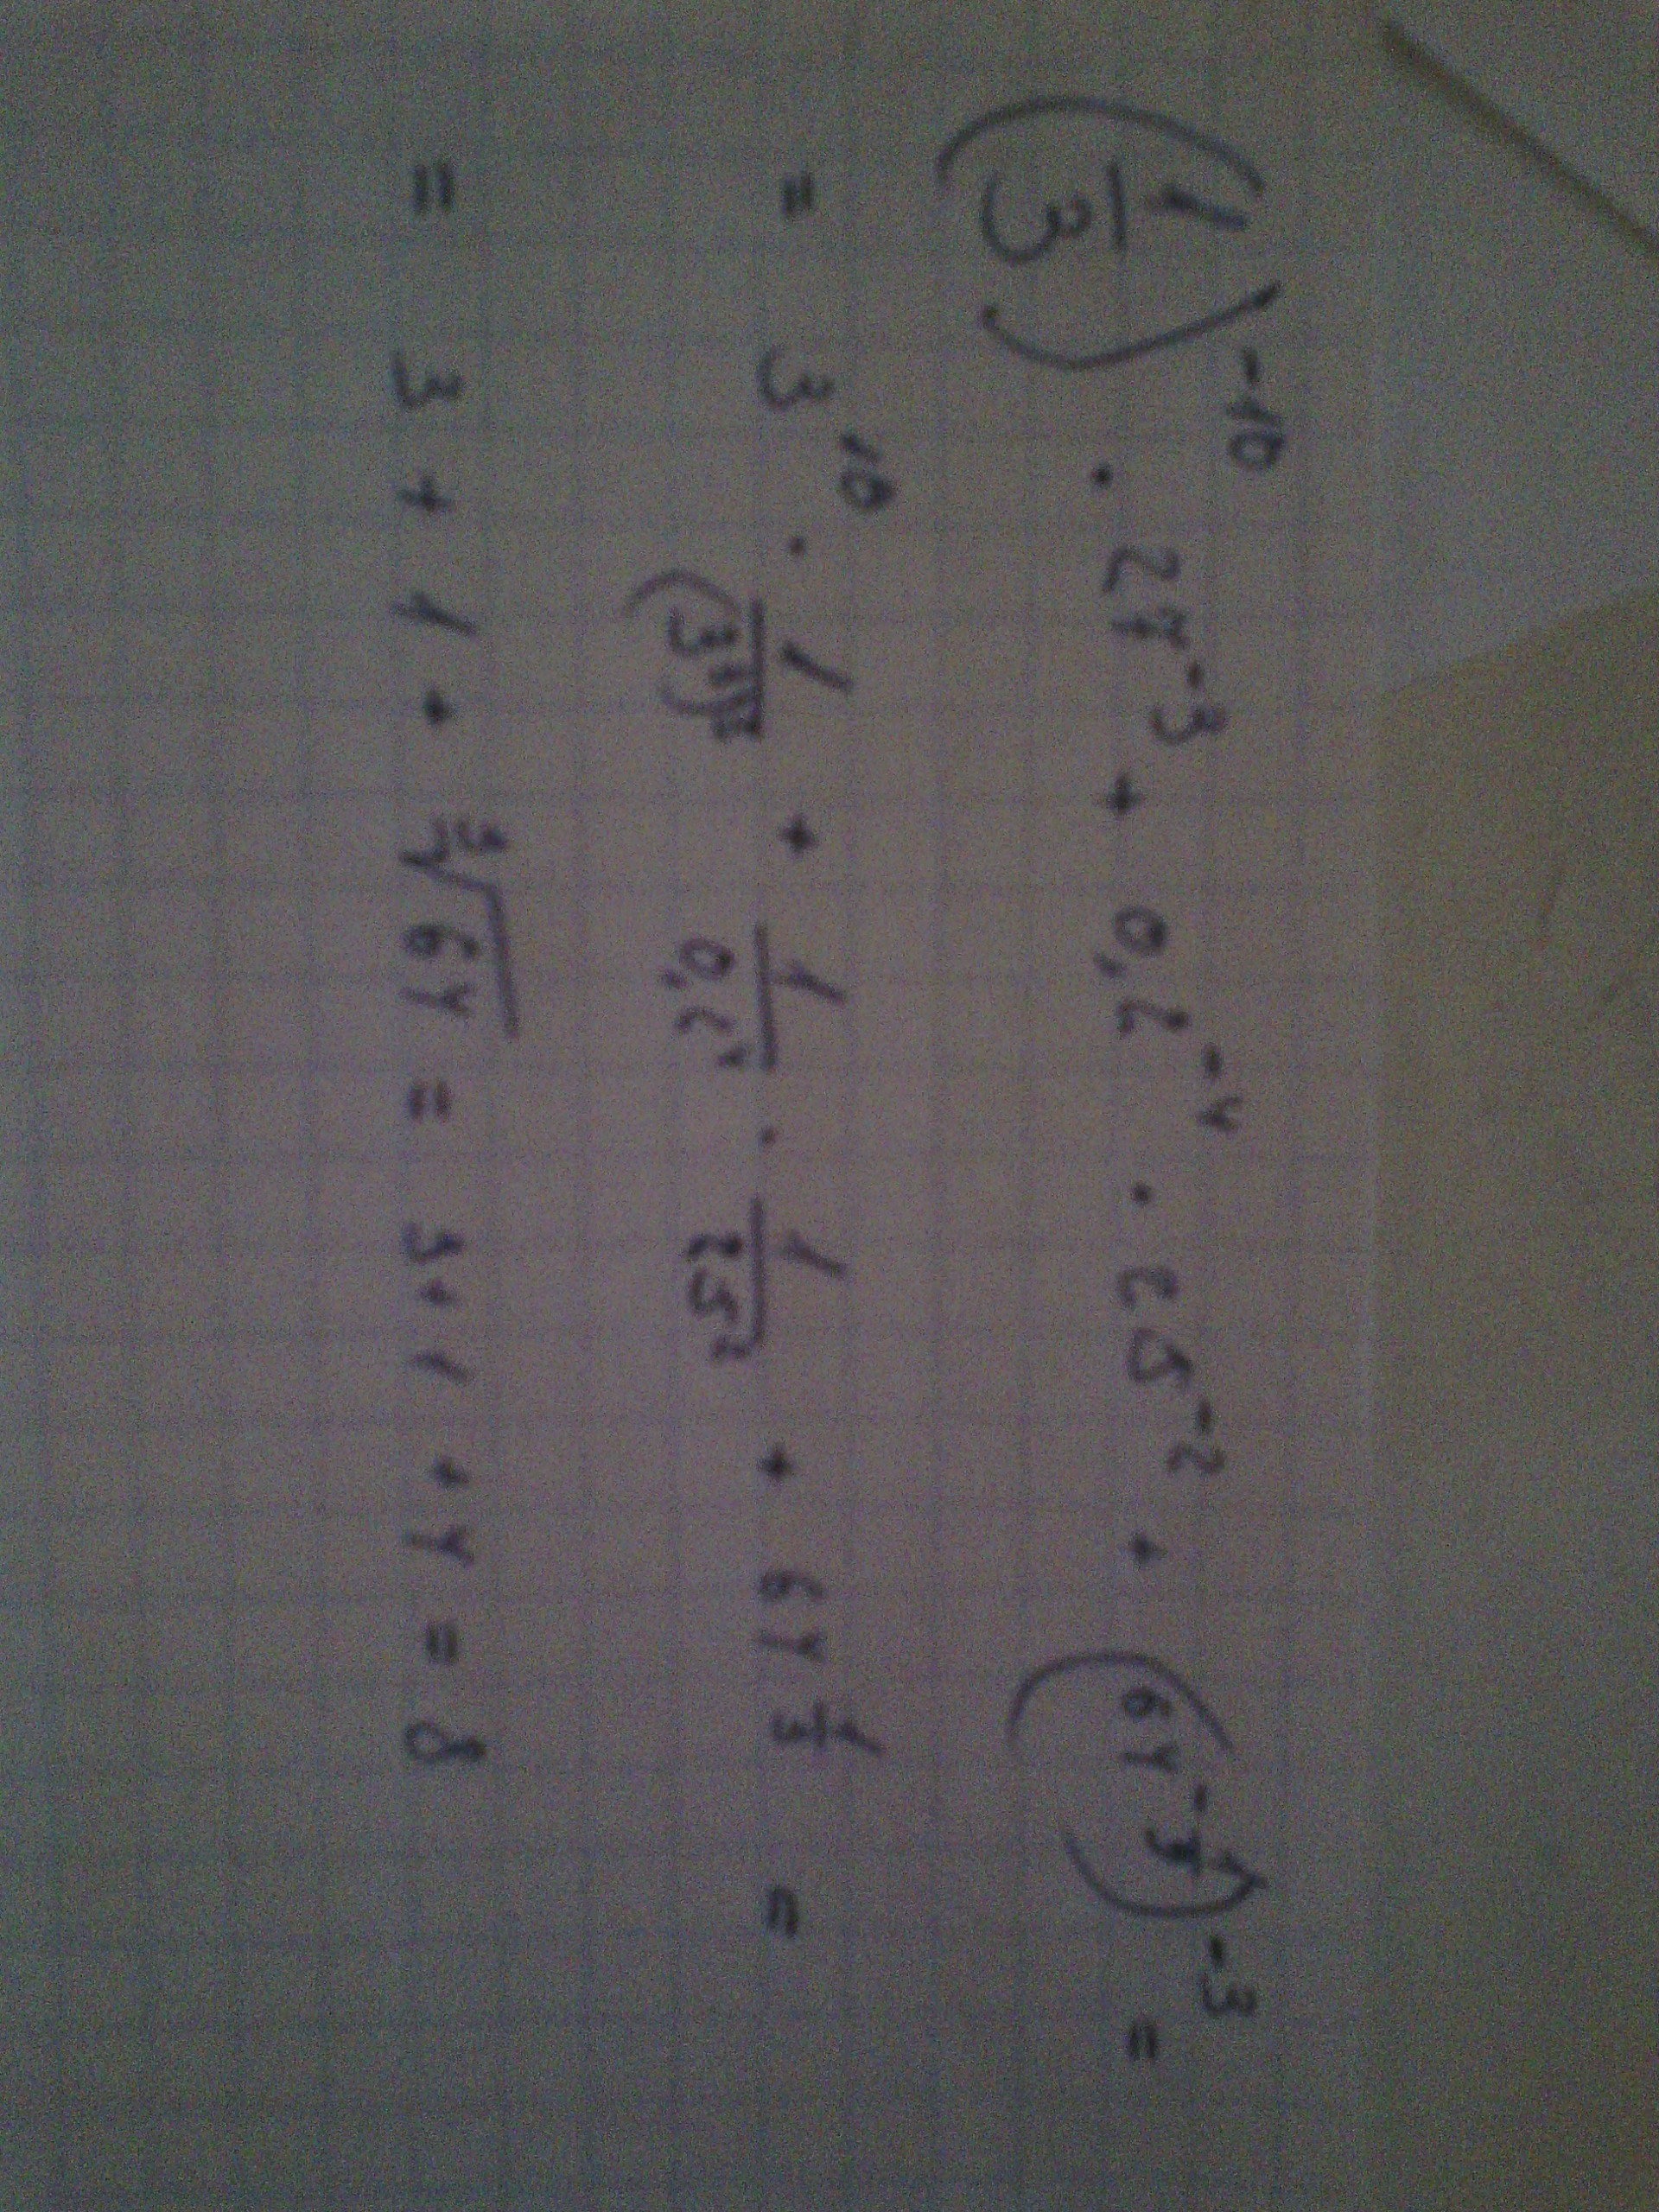 (1/3)^-10 · 27^-3 + 0,2^-4 · 25^-2 + (64^-1/9)^-3 =
= 3^10 · 1/(3^3)^3 + 1/0,2^4 · 1/25^2 + 64^1/3 =
= 3 + 1 + ∛64 = 3+1+4 = 8